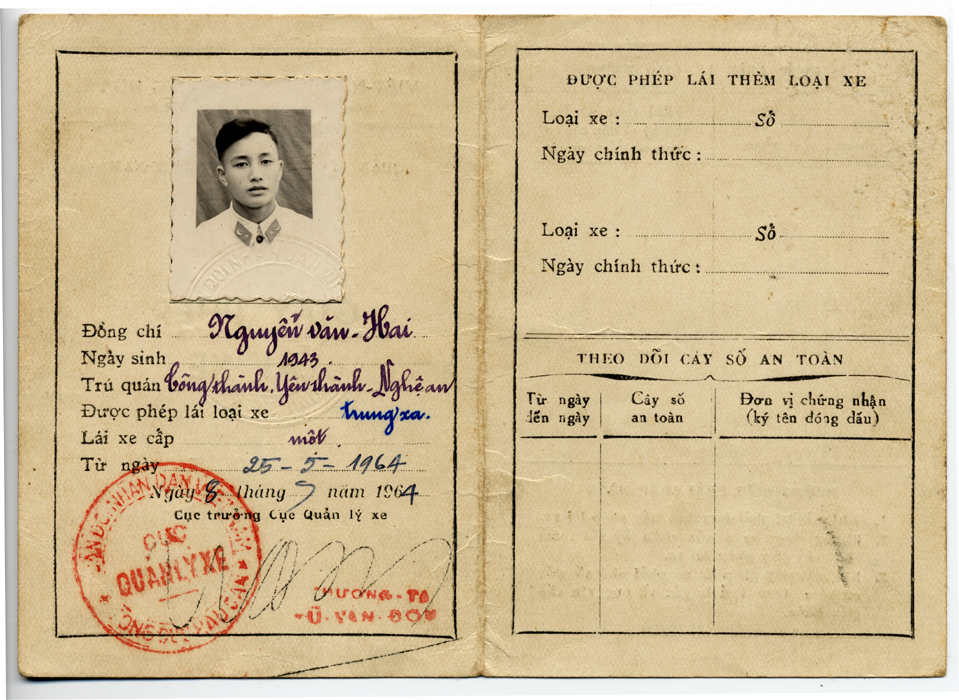 Đồng chí Nguyễn văn-Hai
Ngày sinh 1943
Trú quán Công thành, Yên thành-Nghệ an
Được phép lái loại xe trung xa.
Lái xe cấp một
Từ ngày 25-5-1964
Ngày 8 tháng 7 năm 1964
Cục trưởng Cục Quản lý xe
NHÂN DÂN VIỆT NAM
CỤC
QUẢN LÝ XE
VĂN ĐÔN
ĐƯỢC PHÉP LÁI THÊM LOẠI XE
Loại xe : Số
Ngày chính thức :
Loại xe : Số
Ngày chính thức :
THEO DÕI CÂY SỐ AN TOÀN
Từ ngày đến ngày
Cây số an toàn
Đơn vị chứng nhận (ký tên đóng dấu)